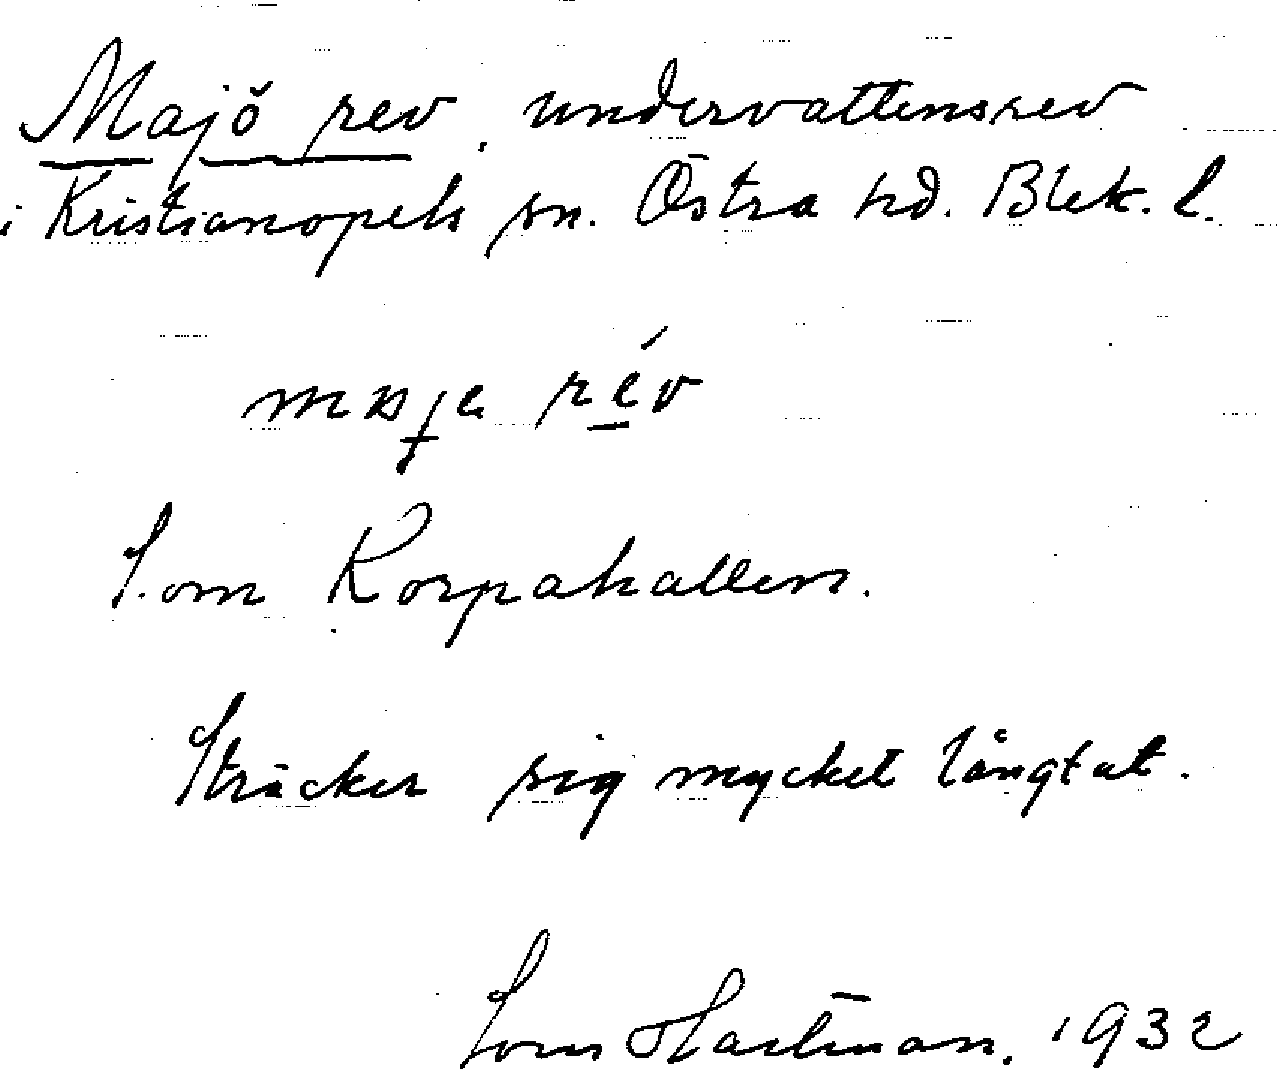 Majö rev, undervattensrev
i Kristianopels sn. Östra hd. Blek. l.
maja rév
S. om Korpahallen.
Sträcker sig mycket långt ut.
Tom Hartman. 1932